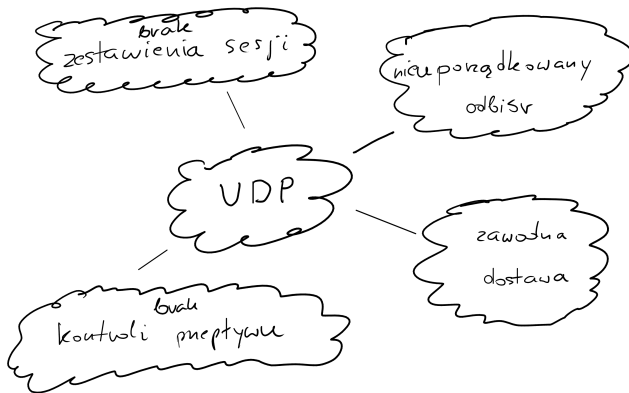 brak
zestawienia sesji
nieuporządkowany
odbiór
UDP
zawodna
dostawa
brak
kontroli przepływu